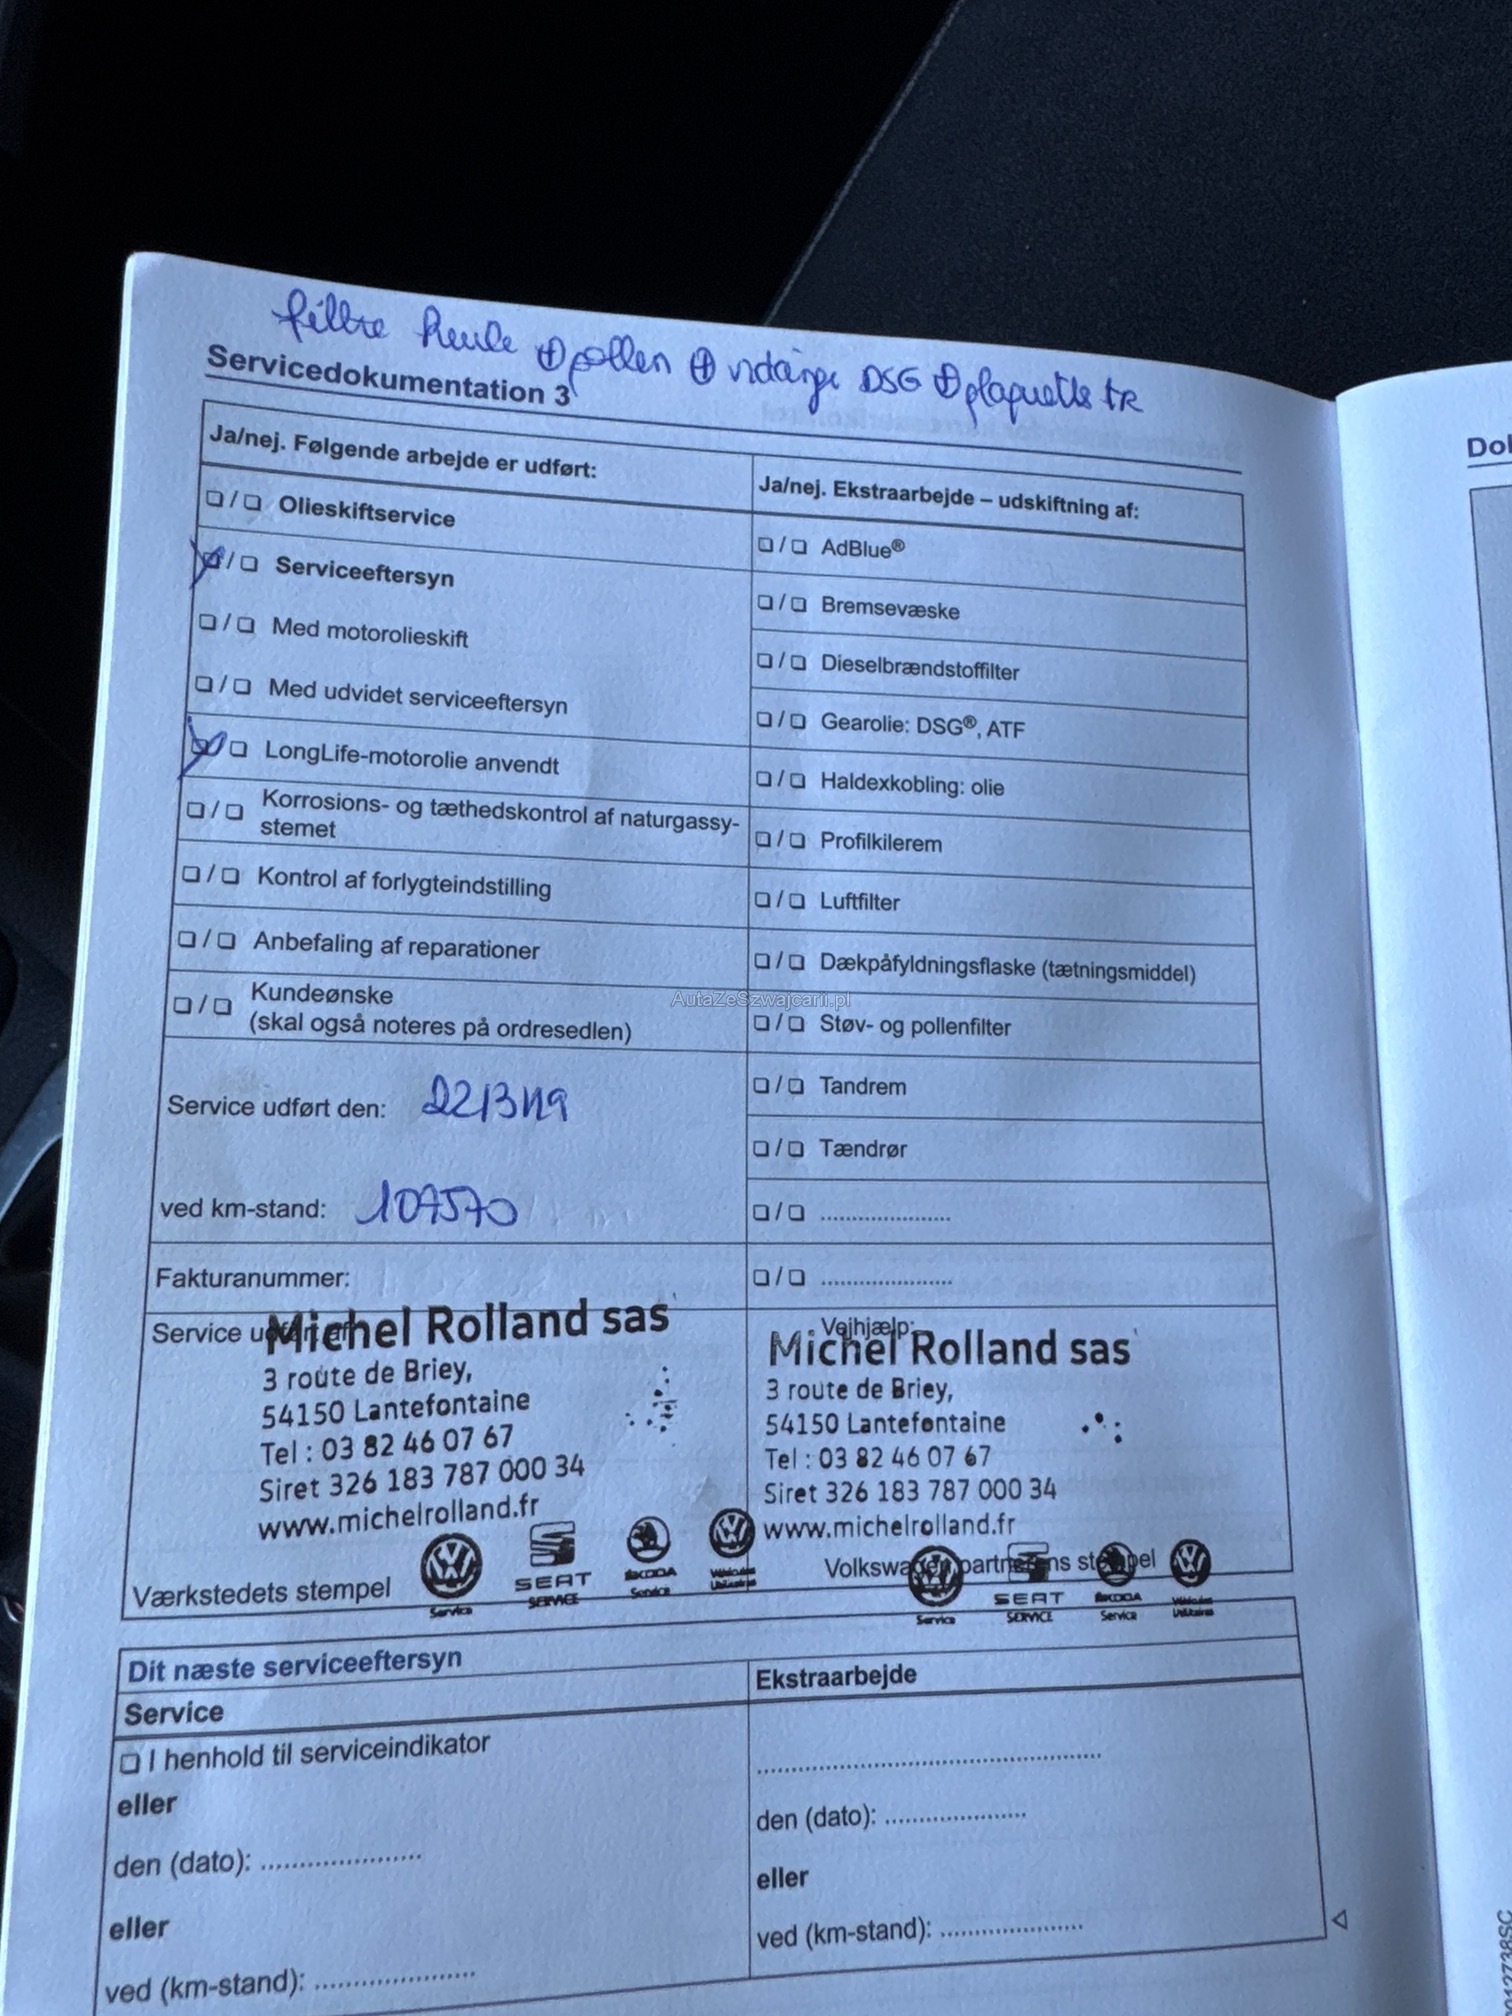 filtre huile ⊕ pollen ⊕ vidange DSG ⊕ plaquette tR
Servicedokumentation 3
Ja/nej. Følgende arbejde er udført:
❑ / ❑ Olieskiftservice
❑ / ❑ Serviceeftersyn
❑ / ❑ Med motorolieskift
❑ / ❑ Med udvidet serviceeftersyn
❑ / ❑ LongLife-motorolie anvendt
❑ / ❑ Korrosions- og tæthedskontrol af naturgassy-
stemet
❑ / ❑ Kontrol af forlygteindstilling
❑ / ❑ Anbefaling af reparationer
❑ / ❑ Kundeønske
(skal også noteres på ordresedlen)
Service udført den: 22/3/19
ved km-stand: 107570
Fakturanummer:
Ja/nej. Ekstraarbejde – udskiftning af:
❑ / ❑ AdBlue®
❑ / ❑ Bremsevæske
❑ / ❑ Dieselbrændstoffilter
❑ / ❑ Gearolie: DSG®, ATF
❑ / ❑ Haldexkobling: olie
❑ / ❑ Profilkilerem
❑ / ❑ Luftfilter
❑ / ❑ Dækpåfyldningsflaske (tætningsmiddel)
❑ / ❑ Støv- og pollenfilter
❑ / ❑ Tandrem
❑ / ❑ Tændrør
❑ / ❑ ......................
❑ / ❑ ......................
Service udført af:
Michel Rolland sas
3 route de Briey,
54150 Lantefontaine
Tel : 03 82 46 07 67
Siret 326 183 787 000 34
www.michelrolland.fr
Service
SEAT
SERVICE
ŠKODA
Service
Véhicules
Utilitaires
Værkstedets stempel
Vejhjælp:
Michel Rolland sas
3 route de Briey,
54150 Lantefontaine
Tel : 03 82 46 07 67
Siret 326 183 787 000 34
www.michelrolland.fr
Volkswagen partnerens stempel
Service
SEAT
SERVICE
ŠKODA
Service
Véhicules
Utilitaires
Dit næste serviceeftersyn
Service
❑ I henhold til serviceindikator
eller
den (dato): ........................
eller
ved (km-stand): ........................
Ekstraarbejde
..................................................
den (dato): ......................
eller
ved (km-stand): ......................
AutaZeSzwajcarii.pl
Dol